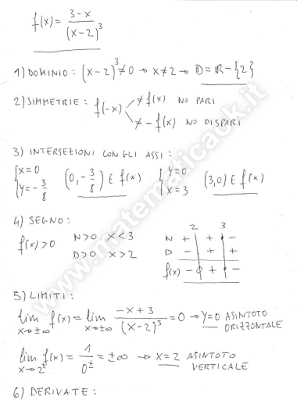 f(x) = 3-x / (x-2)³
1) DOMINIO: (x-2)³≠0 → x≠2 → D=R-{2}
2) SIMMETRIE: f(-x) ≠f(x) NO PARI
≠-f(x) NO DISPARI
3) INTERSEZIONI CON GLI ASSI:
{x=0 y=-3/8 (0,-3/8) ∈ f(x) {y=0 x=3 (3,0) ∈ f(x)
4) SEGNO:
2 3
f(x)>0 N>0 x<3 N + + -
D>0 x>2 D - + +
f(x) - + -
5) LIMITI:
lim x→±∞ f(x) = lim x→±∞ -x+3 / (x-2)³ = 0 → y=0 ASINTOTO ORIZZONTALE
lim x→2± f(x) = 1/0± = ±∞ → x=2 ASINTOTO VERTICALE
6) DERIVATE: